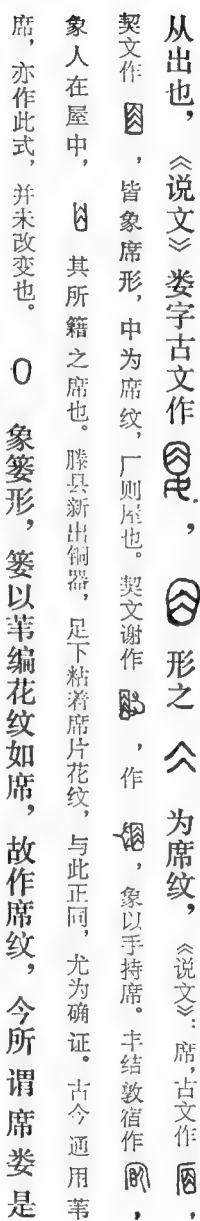 从出也，《说文》娄字古文作，形之为席纹，《说文》：席，古文作，
契文作，皆象席形，中为席纹，厂则屋也。契文谢作，作，象以手持席。丰结敦宿作，
象人在屋中，其所籍之席也。滕县新出铜器，足下粘着席片花纹，与此正同，尤为确证。古今通用苇
席，亦作此式，并未改变也。象篓形，篓以苇编花纹如席，故作席纹，今所谓席娄是